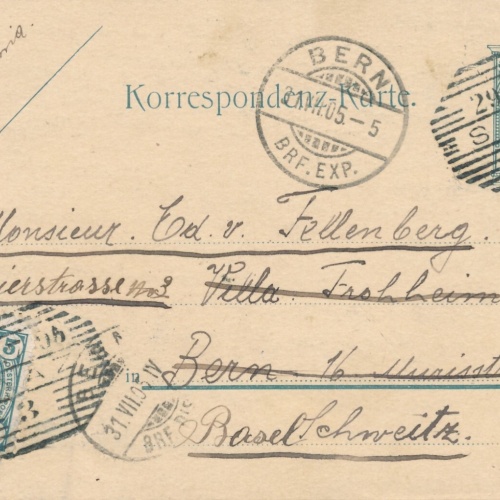 BERN
31.VII.05.-5
BRF.EXP.
Korrespondenz-Karte.
29
S
Monsieur. Ed. v. Fellenberg.
ierstrasse No 3 Villa Frohheim
in Bern 16 Muristr
31.VII.0 IV
BRF.DIS
Basel Schweitz.
5
3